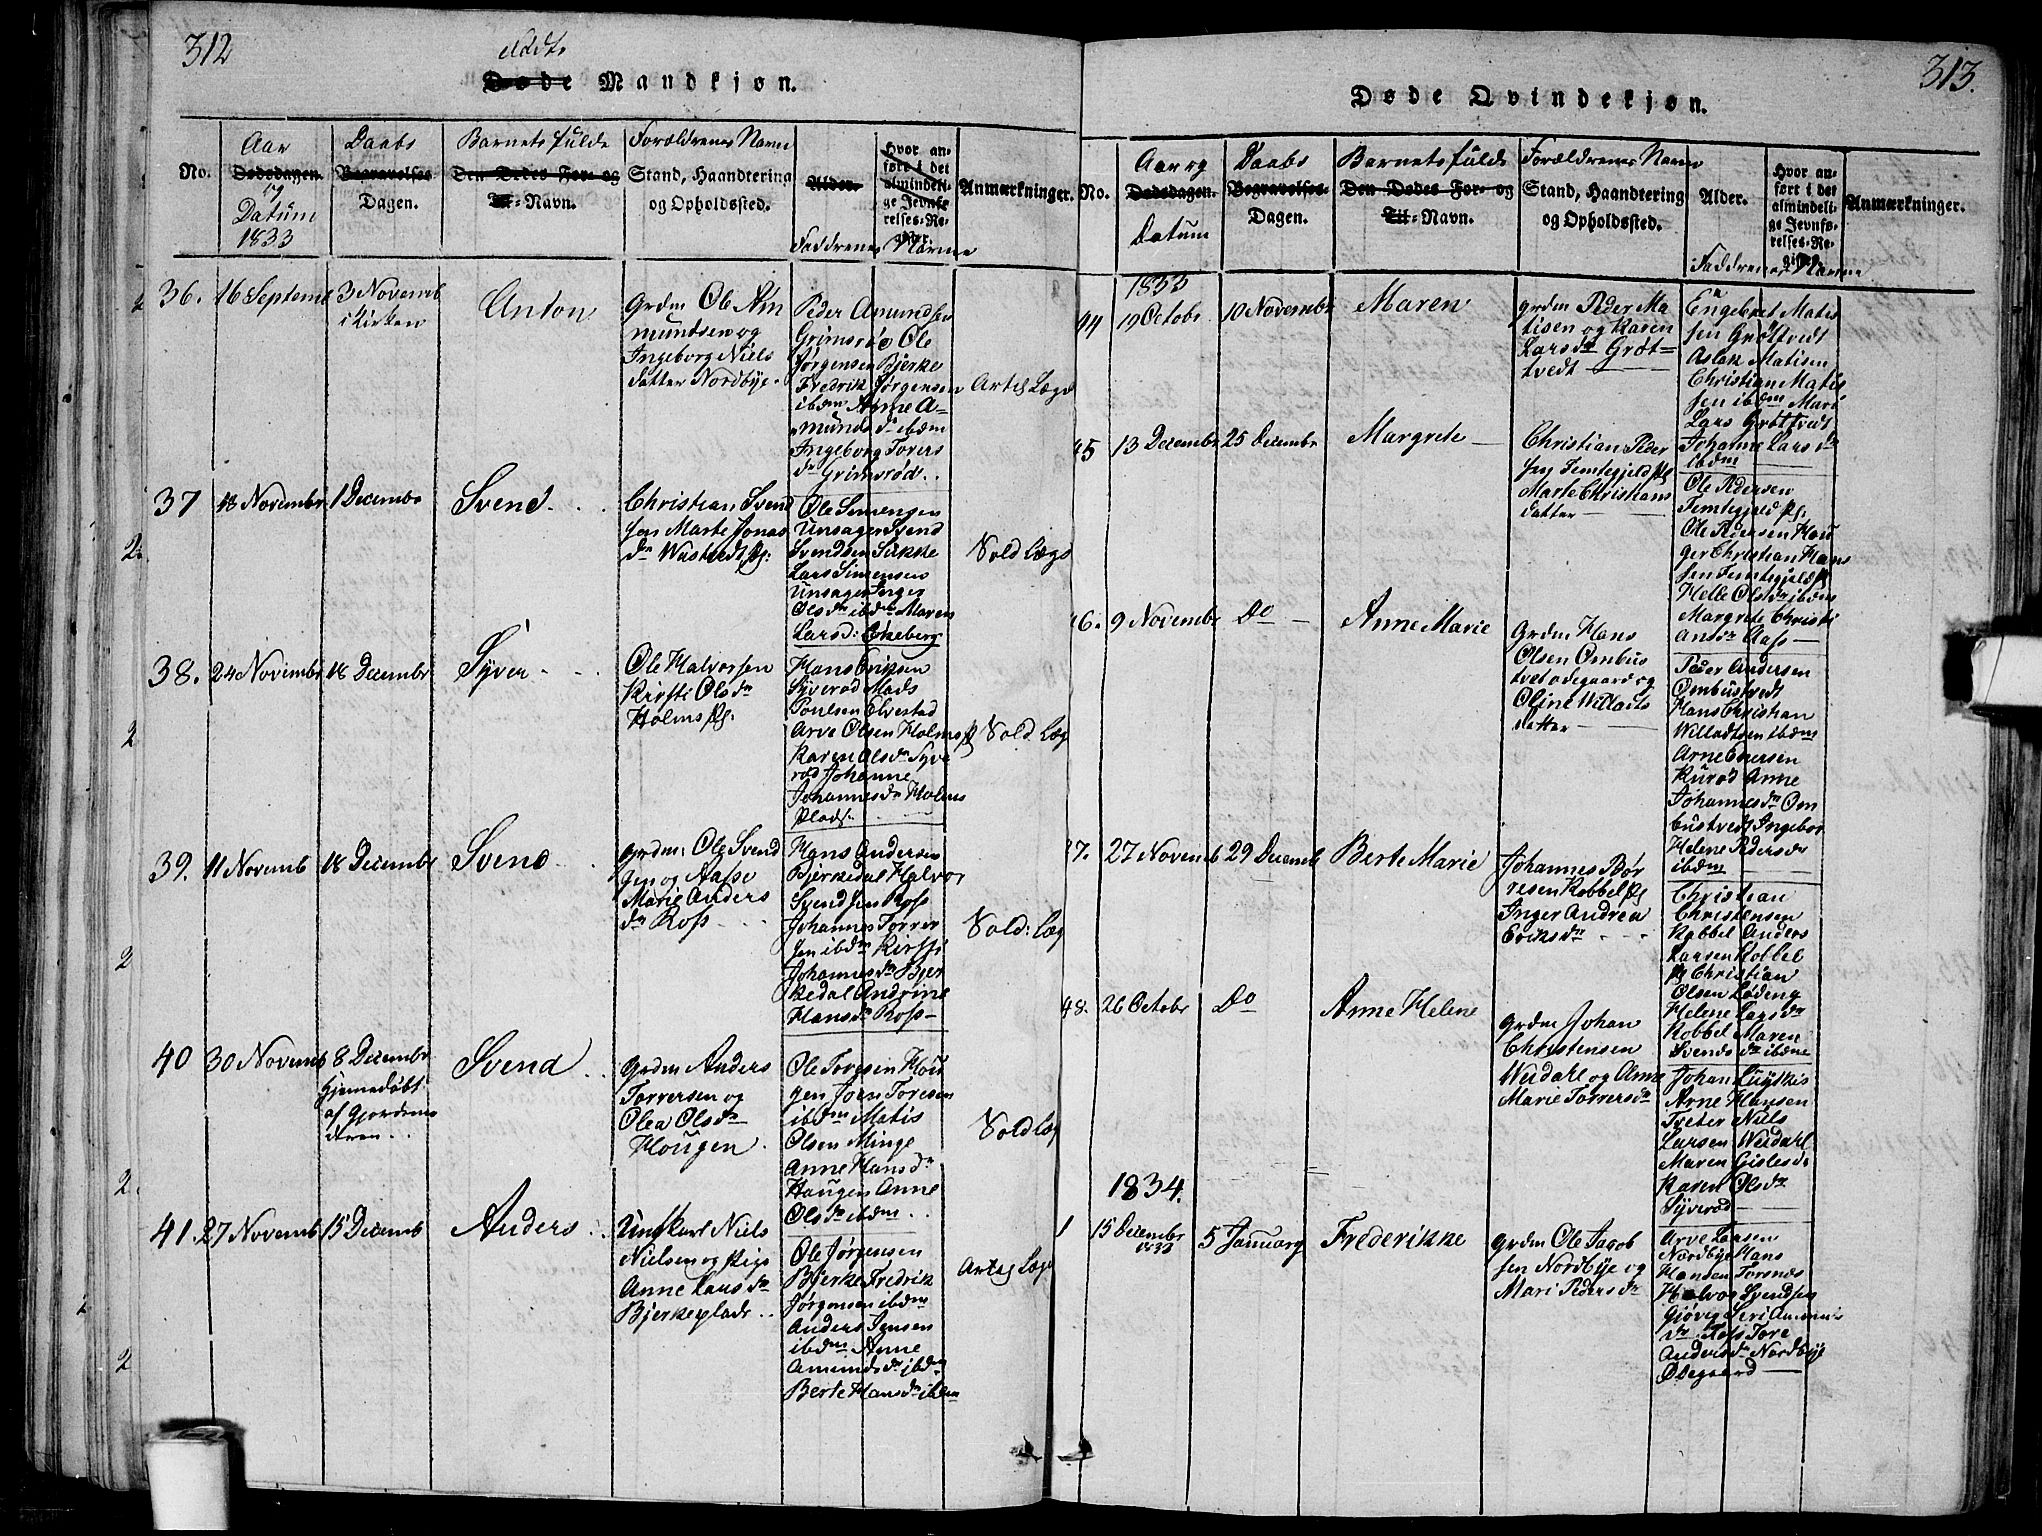 312
Fødte
Døde Mandkjøn.
No.
Aar
Dødsdagen.
og
Datum
1833
Daabs
Begravelses-
Dagen.
Barnets fulde
Den Dødes For- og
Til-Navn.
Forældrenes Navn
Stand, Haandtering
og Opholdssted.
Alder.
Hvor an-
ført i det
almindeli-
ge Jevnfø-
relses-Re-
gister.
Faddrenes Navne
Anmærkninger.
36. 16 Septemb 3 Novemb
i Kirken
Anton
Grdm Ole Am
mundsen og
Ingeborg Niels
datter Nordbye.
Peder Amundsen
Grimsrød Ole
Jørgensen Bjerke
Fredrik Jørgensen
ibdm Anne A-
munds dr ibdm
Ingeborg Torers
dr Grimsrød.
Artel Lægd
37 18 Novembr 1 Decembr
Svend.
Christian Svend
sen Marte Jonas
dr Wistvedt Pl:
Ole Simensen
Unsager Svend
Svendsen Sikke
Lars Simensen
Unsager Inger
Olsdr ibdm Maren
Larsd: Ekeberg
Sold Lægd
38. 24 Novembr 18 Decembr
Syver
Ole Halvorsen
Kirsti Olsdr
Holms Pl:
Hans Eriksen
Syverød Mads
Poulsen Elvestad
Arve Olsen Holms Pl
Karen Olsdr Syve
rød Johanne
Johannesdr Holms
Plads.
Sold. Læg
39. 11 Novemb 18 Decembr
Svend
Grdm: Ole Svend
sen og Aase
Marie Anders
dr Ross
Hans Andersen
Bjerkedal Halvor
Svendsen Ross
Johannes Torrer
sen ibdm Kirsti
Johannesdr Bjer
kedal Andrine
Hansdr Ross
Sold: Læg
40 30 Novemb 8 Decembr
hjemedøbt
af Gjordemo
deren
Svend
Grdm Anders
Torrersen og
Olea Olsdr
Hougen
Ole Toresen Hou
gen Jørn Toresen
ibdm Matis
Olsen Minge
Anne Hansdr
Haugen Anne
Olsdr ibdm
Sold Læg
41. 27 Novemb 15 Decemb
Anders
Ungkarl Niels
Nielsen og Pige
Anne Larsdr
Bjerkeplads
Ole Jørgensen
Bjerke Fredrik
Jørgensen ibdm
Anders Jensen
ibdm Anne
Amundsdr ibdm
Berte Hansdr ibdm
Artel Læg
313.
Døde Qvindekjøn.
No.
Aar og
Dødsdagen.
Datum
Daabs
Begravelses-
Dagen.
Barnets fulde
Den Dødes For- og
Til-Navn.
Forældrenes Navn
Stand, Haandtering
og Opholdssted.
Alder.
Hvor an-
ført i det
almindeli-
ge Jevnfø-
relses-Re-
gister.
Faddrenes Navne
Anmærkninger.
1833
44 19 Octobr 10 Novembr
Maren
Grdm Peder Ma
tisen og Karen
Larsdr Grøt=
tvedt
Engebret Matis
sen Grøttvedt
Aslak Matisen
Christian Matis
sen ibdm Mari
Lars Grøttvedt
Johanne Larsdr
ibdm
45 13 Decembr 25 Decembr
Margrete
Christian Peder
sen Femtegjeld Pl
Marte Christians
datter
Ole Pedersen
Femtegjeld Pl.
Ole Pedersen Hou
ger Christian Hans
sen Femtegjeld Pl
Helle Olsdr ibdm
Margrete Christi
andr Aass
46. 9 Novembr Do
Anne Marie
Grdm Hans
Olsen Ombus
tvet odegaard og
Oline Willads
datter
Peder Andersen
Ombustvedt
Hans Christian
Willadsen ibdm
Arne Iversen
Kurød Anne
Johannesdr Om
bustvedt Ingebor
Helene Pedersdr
ibdm
47. 27 Novemb 29 Decemb
Berte Marie
Johannes Bør
resen Kobbel Pl
Inger Andrea
Eriksdr
Christian
Christensen
Kobbel Anders
Larsen Kobbel
Pl Christian
Olsen Løding
Helene Larsdr
Kobbel Maren
Svends dr ibdm
48. 26 Octobr Do
Anne Helene
Grdm Johan
Christensen
Weidahl og Anne
Marie Torrersdr
Johan
Arne Hansen
Treter Niels
Larsen Weidahl
Maren Gislesdr
Karen Olsdr
Syverød
1834.
1 15 Decembr
1833
5 January
Frederikke
Grdm Ole Jacob
sen Nordbye og
Mari Pedersdr
Arve Larsen
Nordbye Hans
Hansen Torsnes
Halvor Svendsen
Gjøvig Seri Ammun
dr Tofs Tore
Andersdr Nordbye
Ødegaard